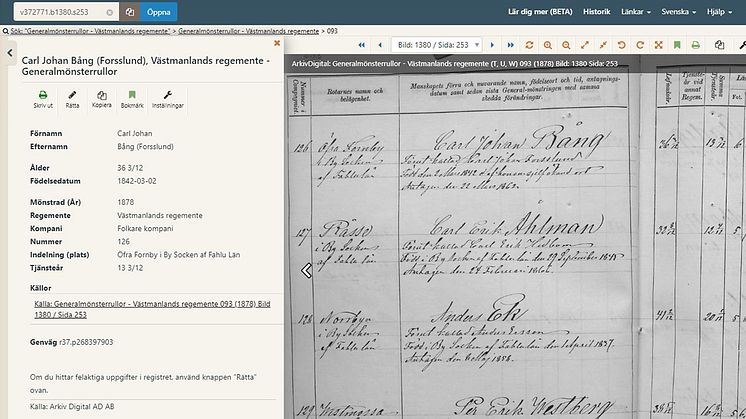 v372771.b1380.s253 Öppna Lär dig mer (BETA) Historik Länkar Svenska Hjälp
Sök: "Generalmönsterrullor - Västmanlands regemente" > Generalmönsterrullor - Västmanlands regemente > 093
Carl Johan Bång (Forsslund), Västmanlands regemente -
Generalmönsterrullor
Skriv ut Rätta Kopiera Bokmärk Inställningar
Förnamn Carl Johan
Efternamn Bång (Forsslund)
Ålder 36 3/12
Födelsedatum 1842-03-02
Mönstrad (År) 1878
Regemente Västmanlands regemente
Kompani Folkare kompani
Nummer 126
Indelning (plats) Öfra Fornby i By Socken af Fahlu Län
Tjänsteår 13 3/12
Källor
Källa: Generalmönsterrullor - Västmanlands regemente 093 (1878) Bild
1380 / Sida 253
Genväg r37.p268397903
Om du hittar felaktiga uppgifter i registret, använd knappen "Rätta"
ovan.
Källa: Arkiv Digital AD AB
Bild: 1380 / Sida: 253
ArkivDigital: Generalmönsterrullor - Västmanlands regemente (T, U, W) 093 (1878) Bild: 1380 Sida: 253
Nummer i Compagniet.
Rotarnes namn och
belägenhet.
Manskapets förra och nuvarande namn, födelseort och tid, antagnings-
datum samt sedan sista General-mönstringen med samma
skedda förändringar.
Lefnadsår.
126 Öfra Fornby
i By Socken
af Fahlu län
Carl Johan Bång
Förut kallad Carl Johan Forsslund
Född den 2 Mars 1842
Antagen den 22 Mars
127
i By Socken
af Fahlu län
Carl Erik Ahlman
Förut kallad Carl Erik
Född i By Socken af Fahlu län den 29 September
Antagen den 24 Februari
128 Norrbyn
i By Socken
af Fahlu län
Anders Ek
Förut kallad Anders Ersson
Född i By Socken af Fahlu län den 1 April 1837.
Antagen den
129
Per Erik Westberg